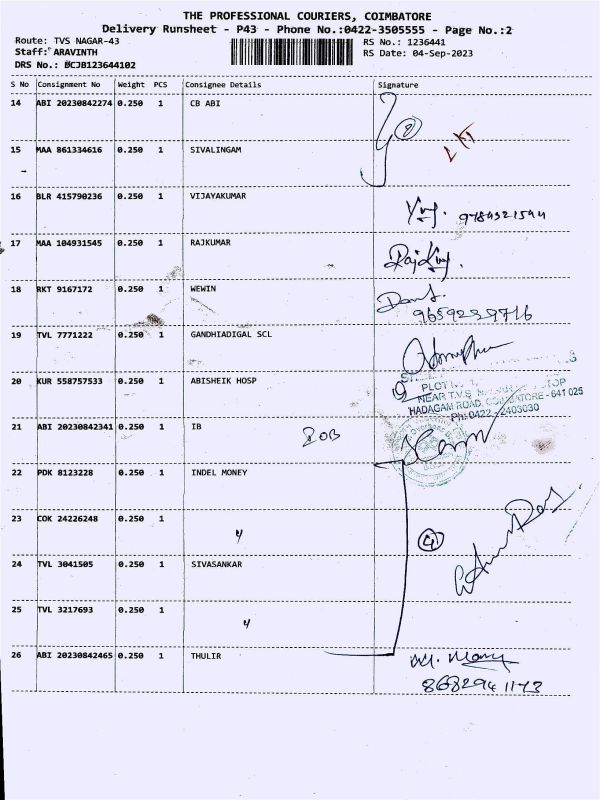 THE PROFESSIONAL COURIERS, COIMBATORE
Delivery Runsheet - P43 - Phone No.:0422-3505555 - Page No.:2
Route: TVS NAGAR-43
RS No.: 1236441
Staff: ARAVINTH
RS Date: 04-Sep-2023
DRS No.: BCJB123644102
S No Consignment No Weight PCS Consignee Details Signature
14 ABI 20230842274 0.250 1 CB ABI
15 MAA 861334616 0.250 1 SIVALINGAM
16 BLR 415790236 0.250 1 VIJAYAKUMAR
17 MAA 104931545 0.250 1 RAJKUMAR
18 RKT 9167172 0.250 1 WEWIN
9659239716
19 TVL 7771222 0.250 1 GANDHIADIGAL SCL
20 KUR 558757533 0.250 1 ABISHEIK HOSP
PLOT
NEAR T.V.S. STOP
HADAGAM ROAD, COIMBATORE - 641 025
Ph: 0422 - 2403030
21 ABI 20230842341 0.250 1 IB
22 PDK 8123228 0.250 1 INDEL MONEY
23 COK 24226248 0.250 1 4
4
24 TVL 3041505 0.250 1 SIVASANKAR
25 TVL 3217693 0.250 1 4
26 ABI 20230842465 0.250 1 THULIR
8682941173